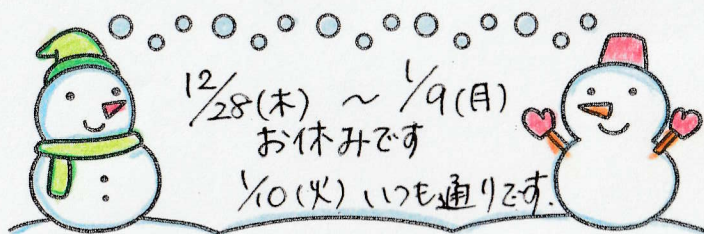 12/28(木) ~ 1/9(月)
お休みです
1/10(火) いつも通りです.